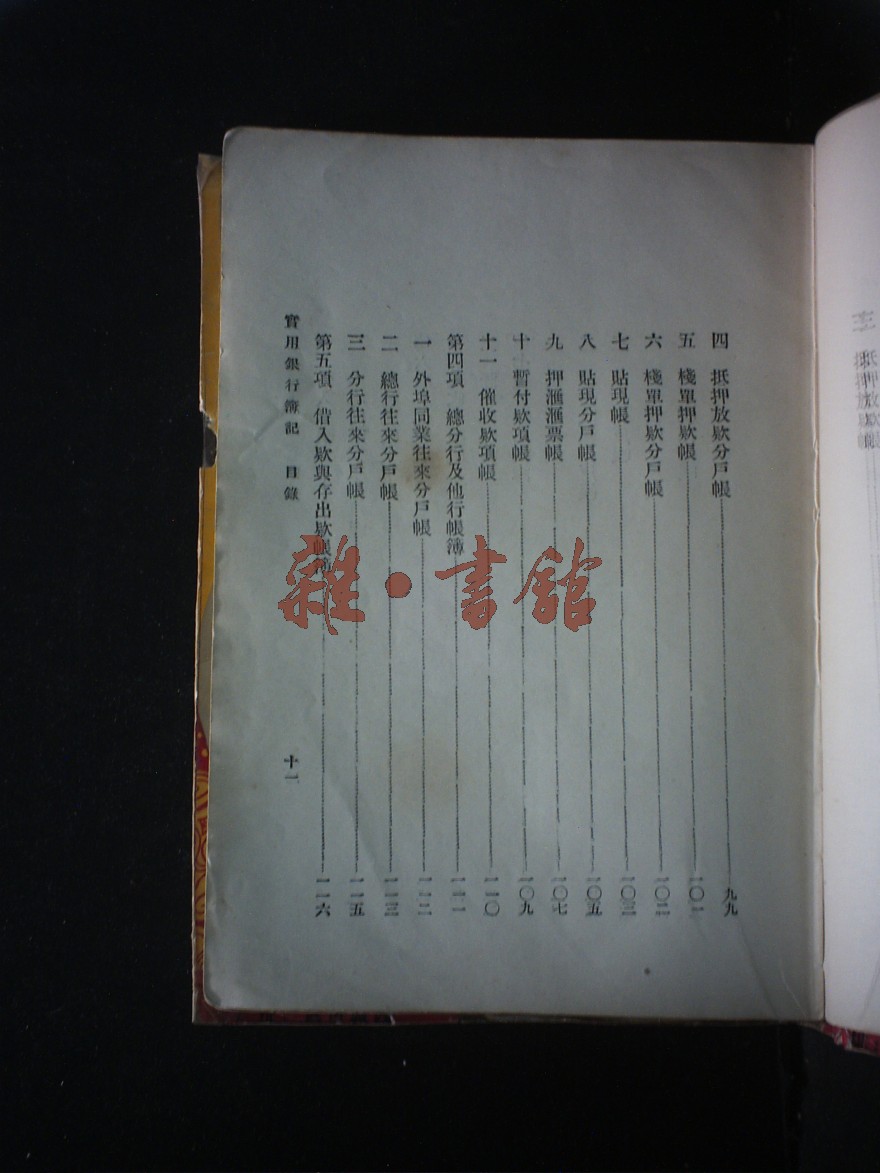 四　抵押放欵分戶帳……九九
五　棧單押欵帳……一〇一
六　棧單押欵分戶帳……一〇二
七　貼現帳……一〇三
八　貼現分戶帳……一〇五
九　押滙滙票帳……一〇七
十　暫付欵項帳……一〇九
十一　催收欵項帳……一一〇
第四項　總分行及他行帳簿……一一一
一　外埠同業往來分戶帳……一一二
二　總行往來分戶帳……一一三
三　分行往來分戶帳……一一五
第五項　借入欵與存出欵帳簿……一一六
實用銀行簿記　目錄　十一
雜·書館